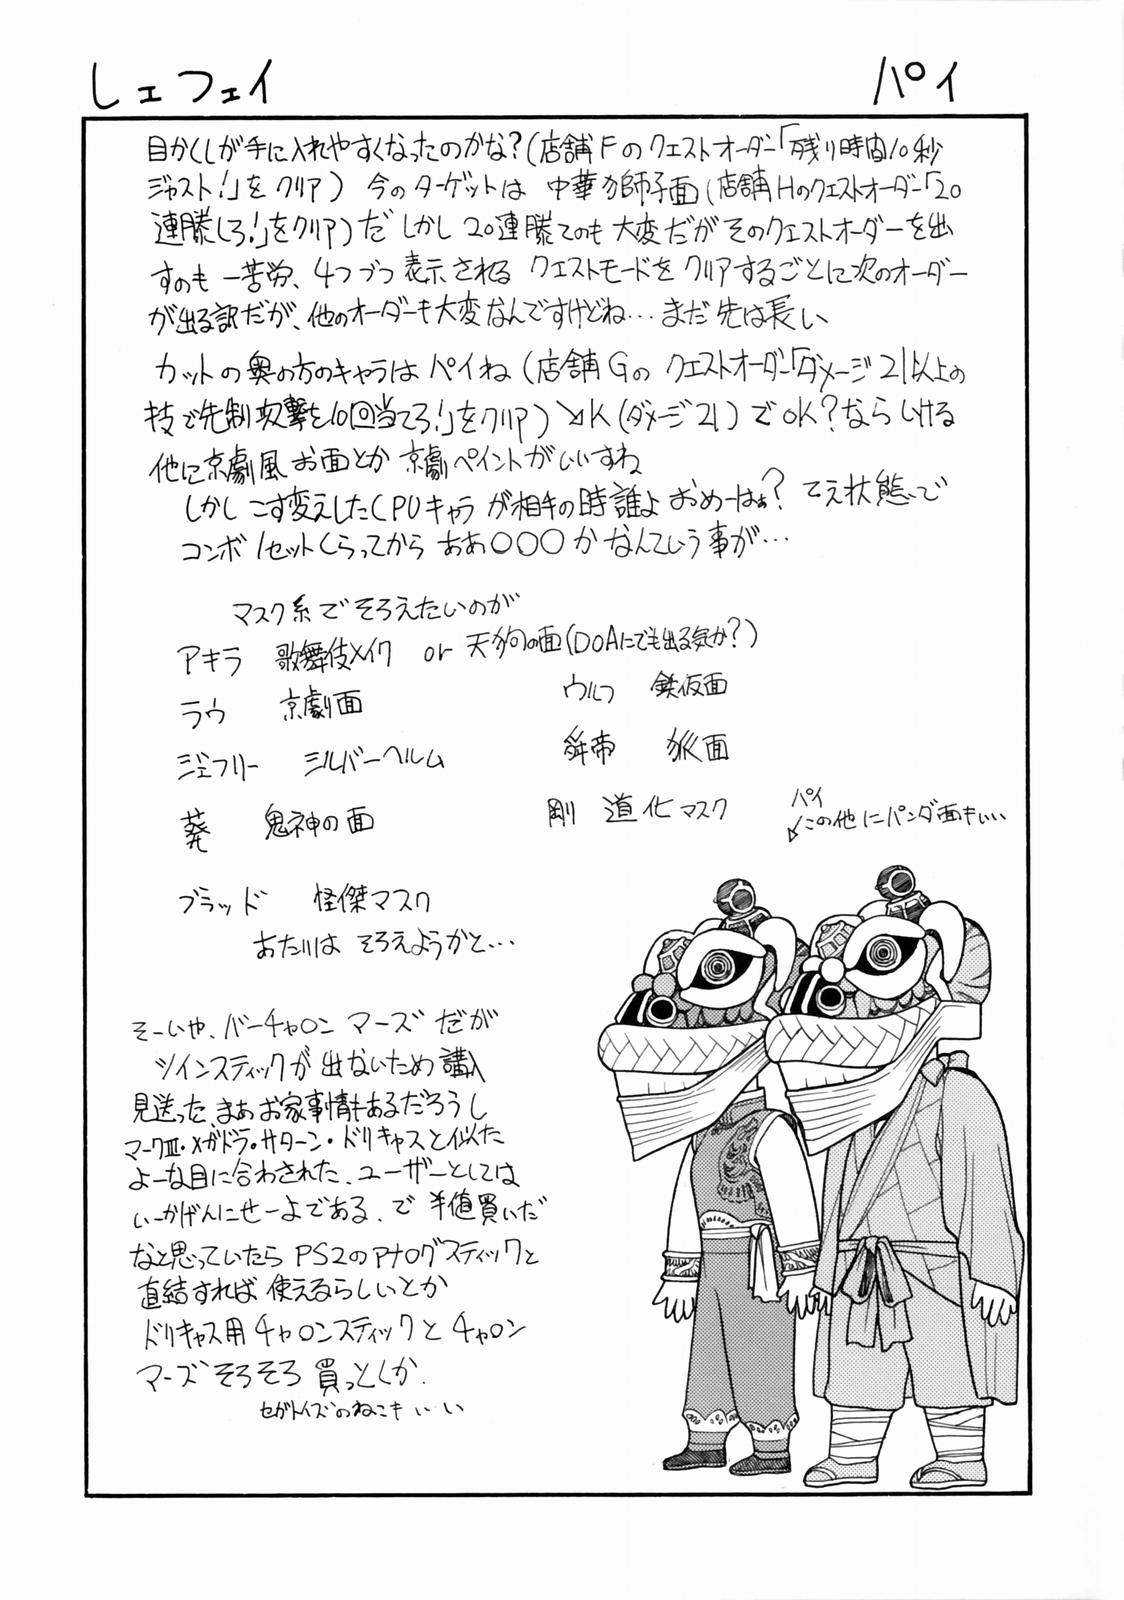 しェフェイ
パイ
目かくしが手に入れやすくなったのかな?(店舗Fのクエストオーダー「残り時間10秒
ジャスト!」をクリア) 今のターゲットは 中華獅子面(店舗Hのクエストオーダー「20
連勝しろ!」をクリア)だ しかし 20連勝てのも 大変だが そのクエストオーダーを出
すのも 一苦労、4つづつ 表示される クエストモードを クリアするごとに次のオーダー
が出る訳だが、他のオーダーも大変なんですけどね…まだ 先は長い
カットの奥の方のキャラは パイね (店舗Gの クエストオーダー「ダメージ21以上の
技で先制攻撃を10回当てろ!」をクリア) ↘K (ダメージ21) でOK?なら いける
他に京劇風 お面とか 京劇ペイントがいいすね
しかし こす変えしたCPUキャラ が相手の時 誰よ おめーはぁ? てえ状態で
コンボ1セットくらってから ああ〇〇〇か なんていう事が…
マスク系で そろえたいのが
アキラ 歌舞伎メイク or 天狗の面(DOAにでも出る気か?)
ラウ 京劇面
ウルフ 鉄仮面
ジェフリー シルバーヘルム
舜帝 狐面
葵 鬼神の面
剛 道化マスク
パイ
この他に パンダ面もいい
ブラッド 怪傑マスク
あたりは そろえようかと…
そーいや、バーチャロン マーズ だが
ツインスティックが 出ないため 購入
見送った、まあ お家事情もあるだろうし
マークⅢ・メガドラ・サターン・ドリキャスと似た
よーな目に合わされた、ユーザーとしては
いーかげんにせーよである、で 半値買いだ
なと思っていたら PS2のアナログスティックと
直結すれば 使えるらしいとか
ドリキャス用 チャロンスティックと チャロン
マーズ そろそろ 買っとくか.
セガトイズのねこもいい